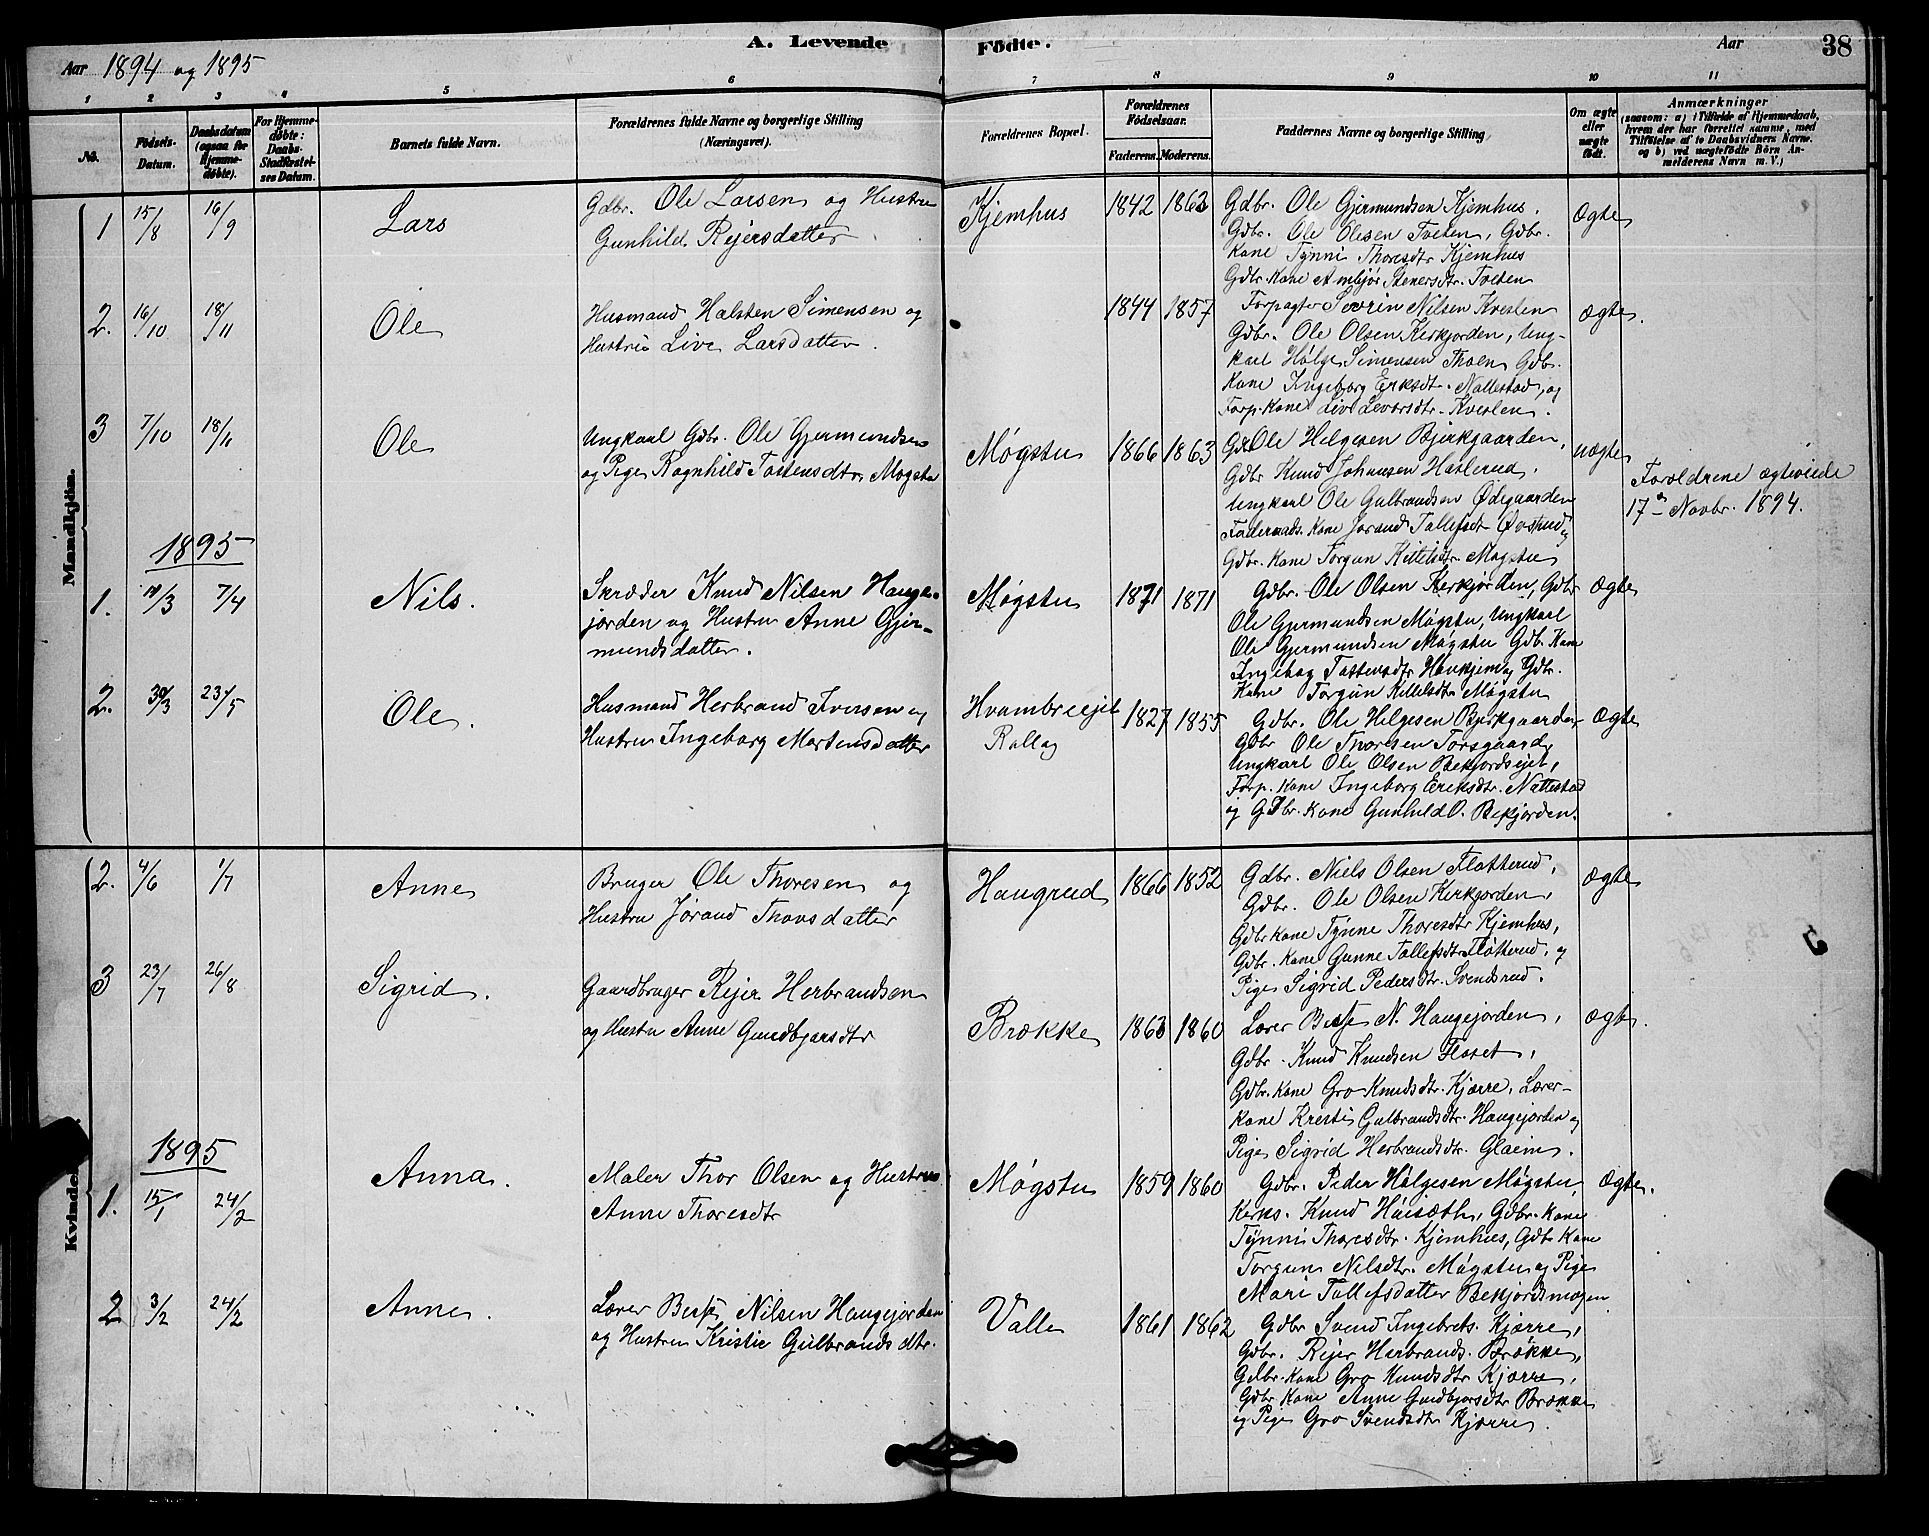 A. Levende Födte.
Aar 1894 og 1895
Aar
38
1 2 3 4 5 6 7 8 9 10 11
No.
Födsels-Datum.
Daabsdatum (ogsaa for Hjemme-døbte).
For Hjemme-døbte: Daabs-Stadfæstel-ses Datum.
Barnets fulde Navn.
Forældrenes fulde Navne og borgerlige Stilling (Næringsvei).
Forældrenes Bopæl.
Forældrenes Födselsaar.
Faderens. Moderens.
Faddernes Navne og borgerlige Stilling.
Om ægte eller uægte födt.
Anmærkninger
(saasom: a) i Tilfælde af Hjemmedaab,
hvem der har forrettet samme, med
Tilföielse af to Daabsvidners Navne,
og b) ved uægtefödte Börn An-
melderens Navn m. V.)
Mandkjön.
1 15/8 16/9 Lars
Gdbr. Ole Larsen og Hustru
Gunhild Rejersdatter
Kjemhus 1842 1863
Gdbr. Ole Gjermundsen Kjemhus,
Gdbr. Ole Olesen Tveten, Gdbr.
Kone Tynni Thoresdtr Kjemhus
Gdbr. Kone Ambjør Stenersdtr. Tveten
Ægte
2. 16/10 18/11 Ole
Husmand Halsten Simensen og
Hustru Live Larsdatter.
1844 1857
Forpagter Severin Nilsen Kveslen
Gdbr. Ole Olsen Kirkjorden, Ung-
karl Helge Simensen Thoen Gdbr.
Kone Ingeborg Eriksdtr. Nattestad, og
Forp. Kone Live Levorsdtr. Kveslen.
Ægte.
3 7/10 18/11 Ole
Ungkarl Gdbr. Ole Gjermundsen
og Pige Ragnhild Tostensdtr. Møgstu
Møgstu 1866 1863
Gdbr. Ole Helgesen Bjerkgaarden,
Gdbr Knud Johansen Haslerud.
Ungkarl Ole Gulbrandsen Ødegaarden
Kone Jørand Tollefsdt Øvstrud,
Gdbr. Kone Torgun Kittilsdtr Møgstu
uægte
Forældrene ægteviede
17de Novbr. 1894.
1895
1. 10/3 7/4 Nils.
Skræder Knud Nilsen Hauge-
jorden og Hustru Anne Gjer-
mundsdatter.
Møgstu 1871 1871
Gdbr. Ole Olsen Kirkjorden, Gdbr
Ole Gjermundsen Møgstu, Ungkarl
Ole Gjermundsen Møgstu Gdb. Kone
Ingebog Tostensdtr og Gdbr.
Kone Torgun Kittelsdtr Møgstu
Ægte
2. 30/3 23/5 Ole.
Husmand Herbrand Iversen og
Hustru Ingeborg Mortensdatter
Hvambreejet
Rollag
1827 1855
Gdbr. Ole Helgesen Bjerkgaarden
Gdbr Ole Thoresen Torsgaard,
Ungkarl Ole Olsen Bekjordsejet,
Forp. Kone Ingeborg Eriksdtr. Nattestad
og Gdbr. Kone Gunhild O. Bekjorden.
Ægte
Kvindekjön.
2. 4/6 1/7 Anne
Bruger Ole Thoresen og
Hustru Jørand Thovsdatter
Haugrud 1866 1852
Gdbr. Niels Olsen Flotterud,
Gdbr. Ole Olsen Kirkjorden,
Gdbr Kone Tynne Thoresdtr Kjemhus,
Gdbr. Kone Gunne Tollefsdtr Flotterud, og
Pige Sigrid Pedersdtr. Svendsrud.
Ægte
3 23/7 26/8 Sigrid.
Gaardbruger Rejer Herbrandsen
og Hustru Anne Gundbjørsdtr
Brække 1863 1860
Lærer N. Haugejorden,
Gdbr. Knud Knudsen Floset,
Gdbr. Kone Gro Knudsdtr. Kjærre, Lærer-
kone Kresti Gulbrandsdtr. Haugejorden og
Pige Sigrid Herbrandsdtr. Glaeim.
Ægte.
1895
1. 15/1 24/2 Anna.
Maler Thor Olsen og Hustru
Anne Thoresdtr
Møgstu 1859 1860
Gdbr. Peder Helgesen Møgstu,
Kirks. Knud Huisæth, Gdbr. Kone
Tynni Thoresdtr. Kjemhus, Gdbr Kone
Torgun Nilsdtr. Møgstu og Pige
Mari Tollefsdatter Bekjordsmogen
Ægte.
2 3/2 24/2 Anne.
Lærer Nilsen Haugejorden
og Hustru Kristie Gulbrandsdtr.
Valle 1861 1862
Gdbr Svend Ingebrets. Kjærre,
Gdbr. Rejer Herbrands. Brække,
Gdbr. Kone Gro Knudsdtr Kjærre,
Gdbr Kone Anne Gundbjørsdtr Brække
og Pige Gro Svendsdtr Kjærre.